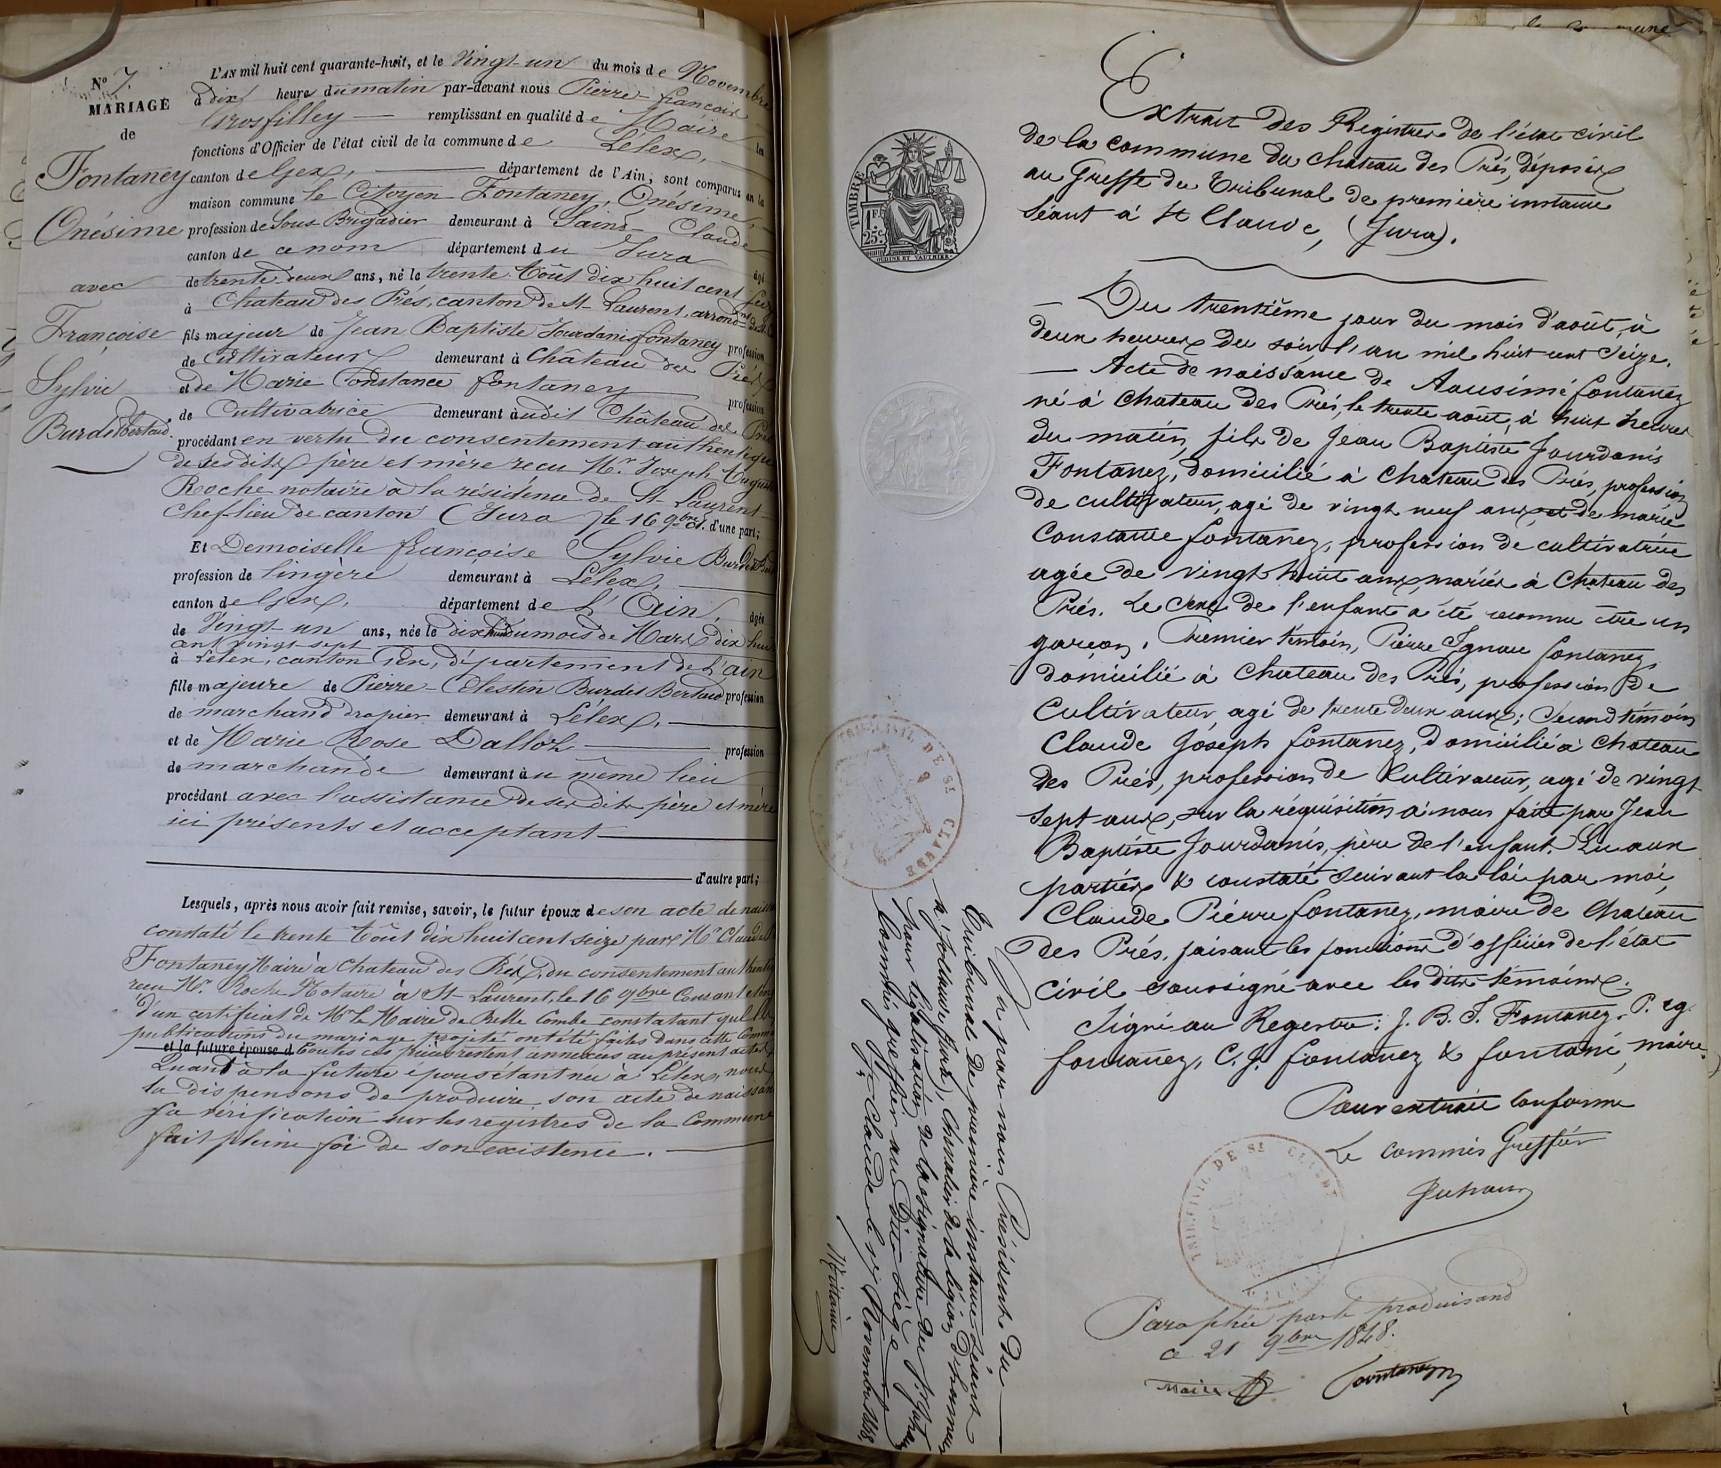 N° 7.
MARIAGE
de
Fontaney
Onésime
avec
Françoise
Sylvie
Burdet Bertaud
L'AN mil huit cent quarante-huit, et le Vingt-un du mois de Novembre
à dix heure du matin par-devant nous Pierre-françois
Grosfilley — remplissant en qualité de Maire les
fonctions d'Officier de l'état civil de la commune de Lélex,
canton de Gex, département de l'Ain, sont comparus en la
maison commune le Citoyen Fontaney, Onésime,
profession de Sous Brigadier demeurant à Saint-Claude
canton de ce nom département du Jura âgé
de trente-deux ans, né le trente Août dix huit cent seize
à Chateau des Prés, canton de St Laurent, arrond.
fils majeur de Jean Baptiste Jourdani fontaney profession
de Cultivateur demeurant à Château des Prés
et de Marie Constance fontaney profession
de Cultivatrice demeurant àudit Château des Prés
procédant en vertu du consentement authentique
de ses dits père et mère recu Mr. Joseph Auguste
Roche notaire à la résidence de St Laurent
Chef-lieu de canton (Jura) le 16 9bre Ct. d'une part;
Et Demoiselle françoise Sylvie Burdet
profession de lingère demeurant à Lélex,
canton de Gex, département de L'Ain, âgée
de Vingt un ans, née le dix huit du mois de Mars dix huit
cent vingt-sept
à Lélex, canton Gex, département de L'ain
fille majeure de Pierre-Célestin Burdet Bertaud profession
de marchand drapier demeurant à Lélex,
et de Marie Rose Dalloz profession
de marchande demeurant àu même lieu
procédant avec l'assistance de ses dits père et mère
ici présents et acceptant
d'autre part;
Lesquels, après nous avoir fait remise, savoir, le futur époux de son acte de naissance
constaté le trente Août dix huit cent seize par Mr Claude
Fontaney Maire à Chateau des Prés, du consentement authentique
recu Mr. Roche Notaire à St Laurent, le 16 9bre Courant
d'un certificat de Mr le Maire de Belle Combe constatant que les
publications du mariage projeté ont été faites dans cette Commune
et la future épouse d toutes ces pièces restent annexées au présent acte
Quant à la future épouse étant née à Lélex, nous
la dispensons de produire son acte de naissance
sa vérification sur les registres de la Commune
fait pleine foi de son existence.
TIMBRE
1 F.
25 c.
Extrait des Registres de l'état civil
de la commune du chateau des Prés, déposés
au Greffe du Tribunal de première instance
séant à St Claude, (Jura).
— Du trentième jour du mois d'août, à
deux heures du soir, l'an mil huit cent seize.
— Acte de naissance de Aausimé fontanez
né à chateau des Prés, le trente août, à huit heures
du matin, fils de Jean Baptiste Jourdanis
Fontanez, domicilié à chateau des Prés, profession
de cultivateur, agé de vingt neuf ans, et de marie
Constance fontanez, profession de cultivatrice
agée de vingt huit ans, mariés à chateau des
Prés. Le sexe de l'enfant a été reconnu être un
garçon. Premier témoin, Pierre Ignace fontanez,
domicilié à chateau des Prés, profession de
Cultivateur, agé de trente deux ans; Second témoin
Claude Joseph fontanez, domicilié à chateau
des Prés, profession de Cultivateur, agé de vingt
sept ans, sur la réquisition à nous faite par Jean
Baptiste Jourdanis, père de l'enfant. Lu aux
parties & constaté suivant la loi par moi,
Claude Pierre fontanez, maire de chateau
des Prés, faisant les fonctions d'officier de l'état
civil soussigné avec les dits témoins.
Signé au Registre: J. B. J. Fontanez. P. ig.
fontanez, C. J. fontanez & fontané, maire.
Pour extrait conforme
Le commis Greffier
TRIB. CIVIL DE St CLAUDE
Paraphée par le produisant
ce 21 9bre 1848.
Maire
Fontaney
Vu par nous Président du
Tribunal de première instance séant
à St Claude (Jura), Chevalier de la légion d'honneur
pour légalisation de la signature de
Commis greffier au dit siège
St Claude le Novembre 1848.
TRIB. CIVIL DE St CLAUDE